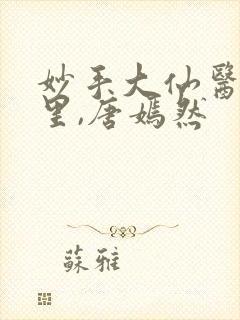 妙手大仙醫
里,唐嫣然
蘇雅